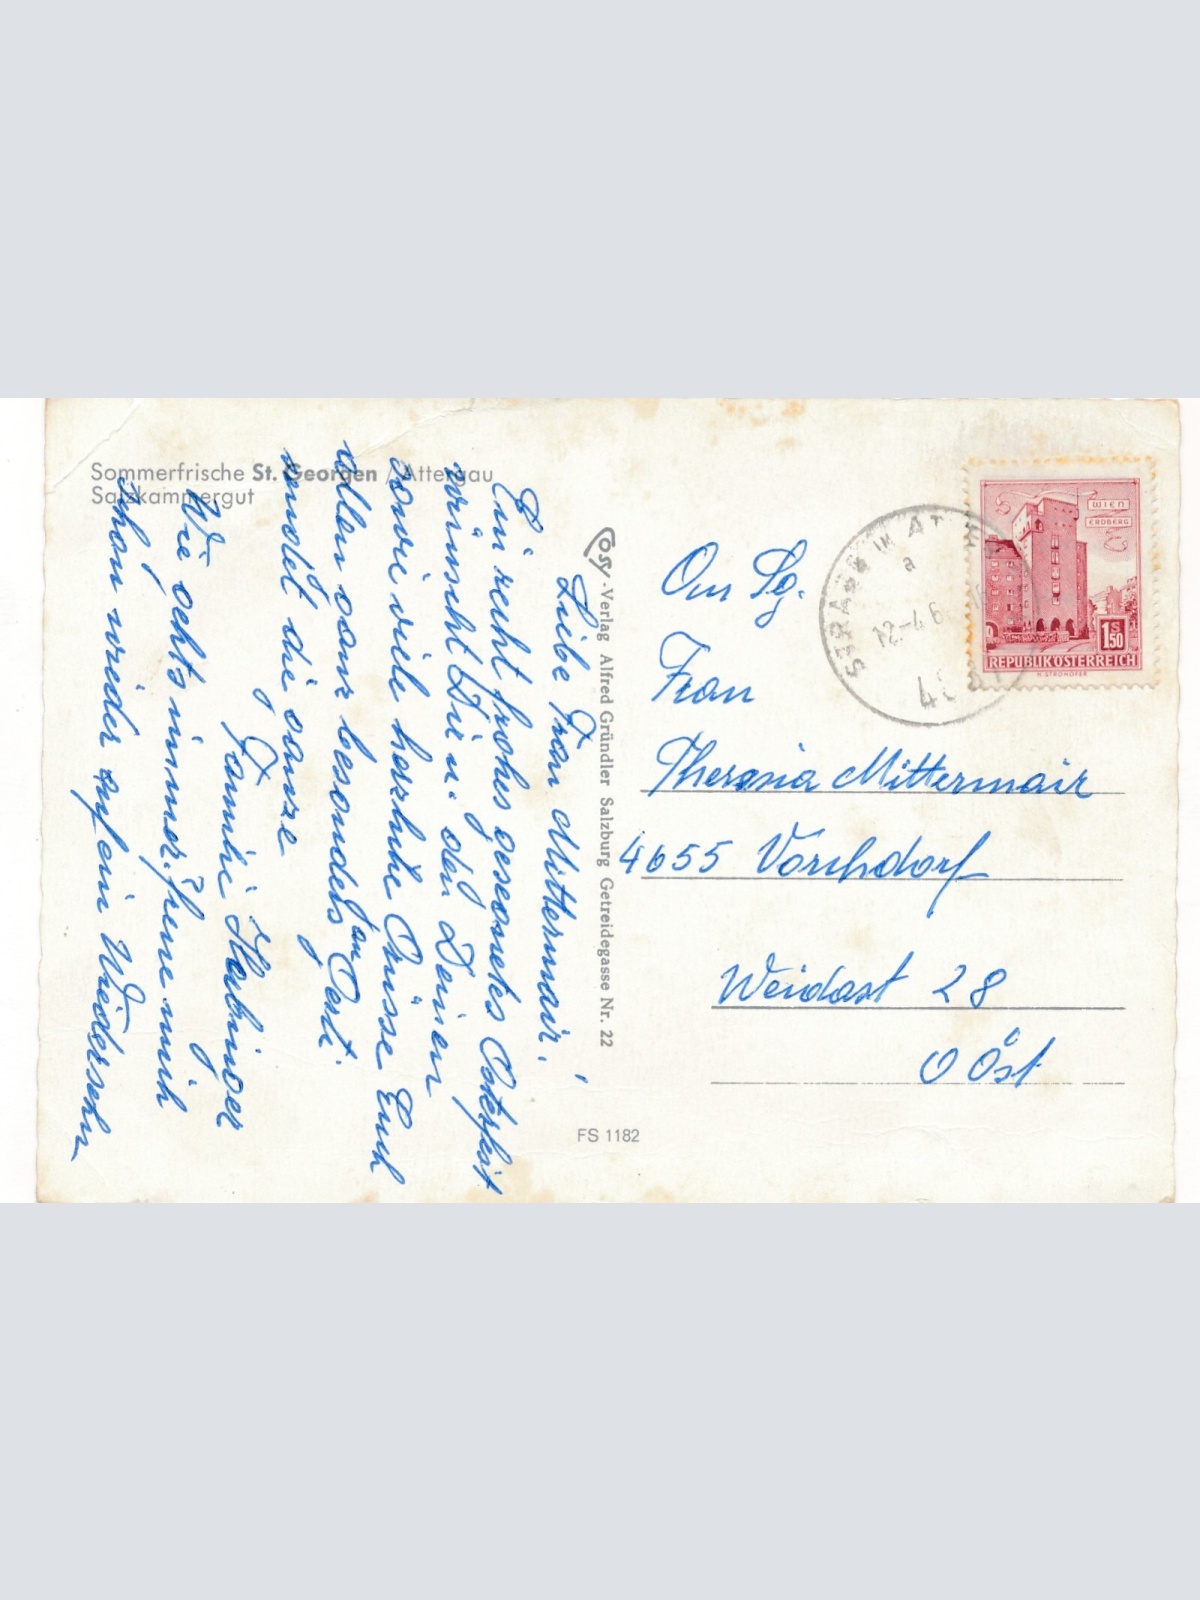 Sommerfrische St. Georgen / Attergau
Salzkammergut
Liebe Frau Mittermair!
Ein recht frohes gesegnetes Osterfest
wünscht Dir u. den Deinen
sowie viele herzliche Grüsse Euch
allen ganz besonders an Pepli.
sendet die ganze
Familie Habinger
Wie gehts immer. freue mich
schon wieder auf ein Wiedersehn
Cosy-Verlag Alfred Gründler Salzburg Getreidegasse Nr. 22
FS 1182
STRASS IM ATT
a
12.-4.6
48
WIEN
ERDBERG
1S50
REPUBLIK ÖSTERREICH
H. STROHOFER
An Sg.
Frau
Theresia Mittermair
4655 Vorchdorf
Weidast 28
O Öst